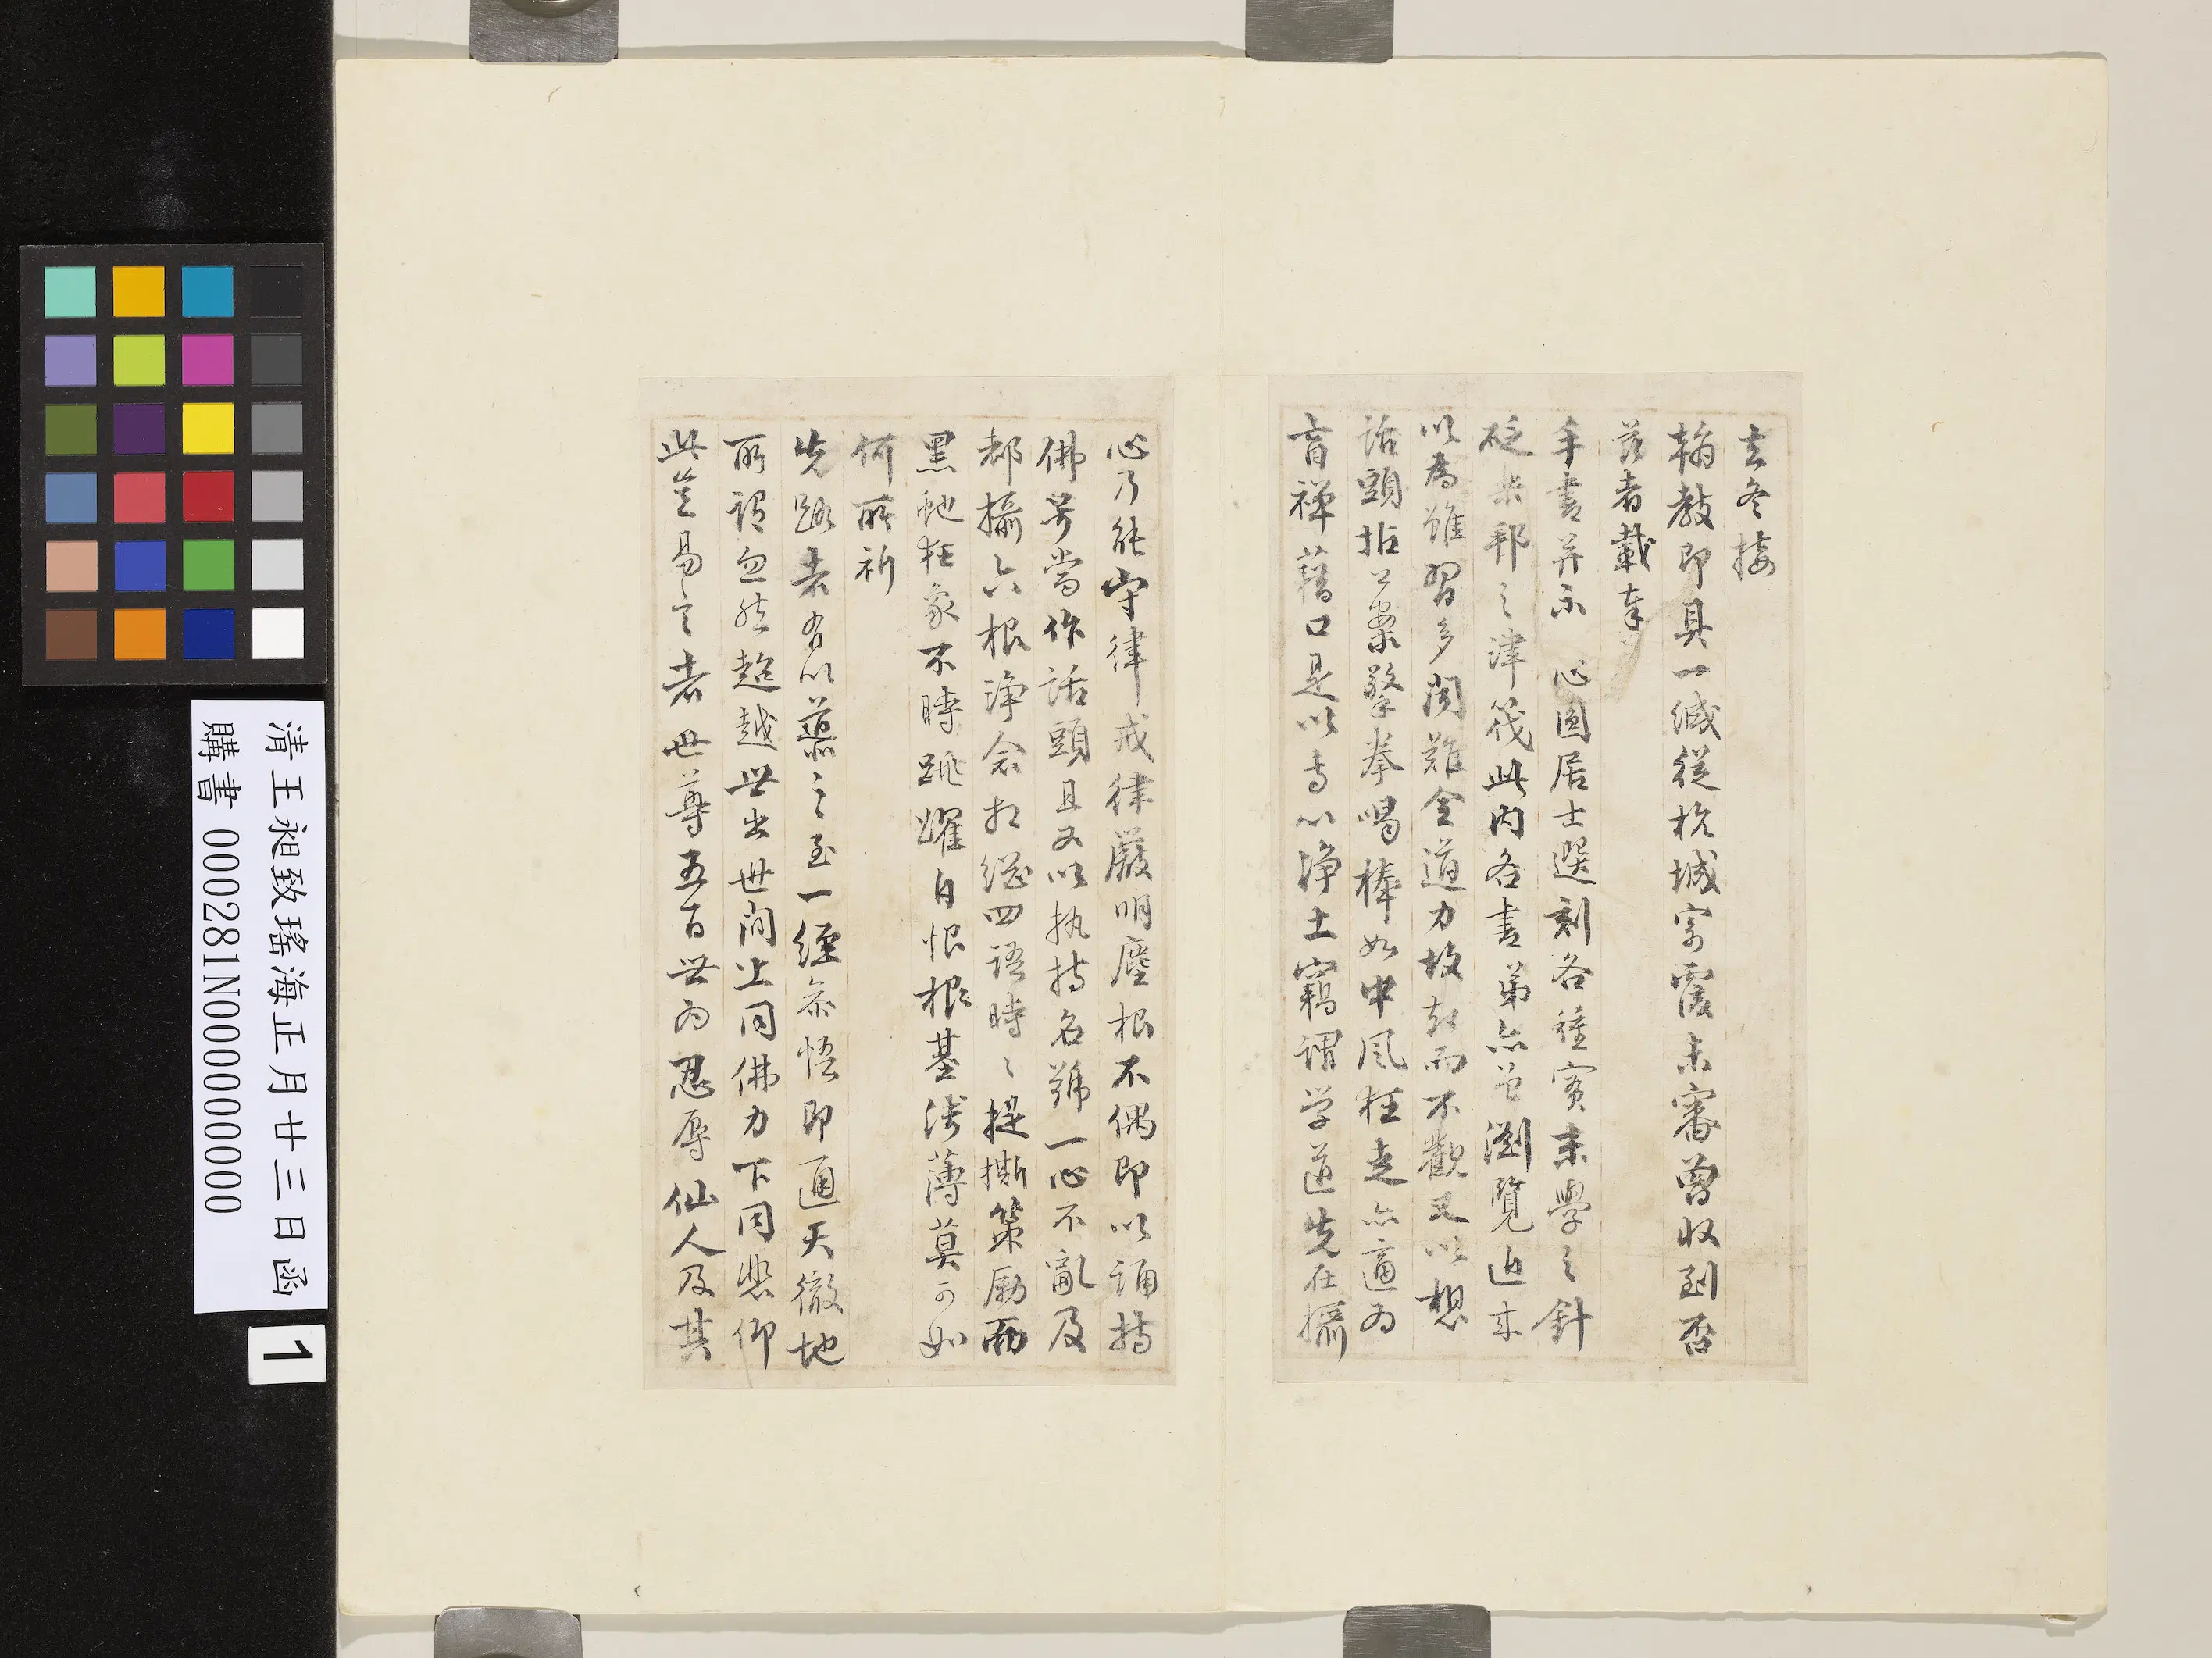 去冬接
翰教即具一緘從杭城寄覆未審曾收到否
茲者載奉
手書并示 心圓居士選刻各種實末學之針
砭迷邦之津筏此內各書弟亦曾瀏覽近來
以為雖習多聞難全道力故都而不觀又以想
話頭拈公案擎拳喝棒如中風狂走亦適為
盲禪藉口是以專心淨土竊謂学道先在攝
心乃能守律戒律嚴明塵根不偶即以誦持
佛号當作話頭且又以执持名號一心不亂及
都攝六根淨念相繼四語時々提撕策勵而
黑虵狂象不時跳躍自恨根基淺薄莫可如
何所祈
先路者有以啟之至一經参悟即通天徹地
所謂忽然超越世出世間上同佛力下同悲仰
此豈易言者世尊五百世为忍辱仙人及其
清王昶致瑤海正月廿三日函
購書 000281N000000000
1